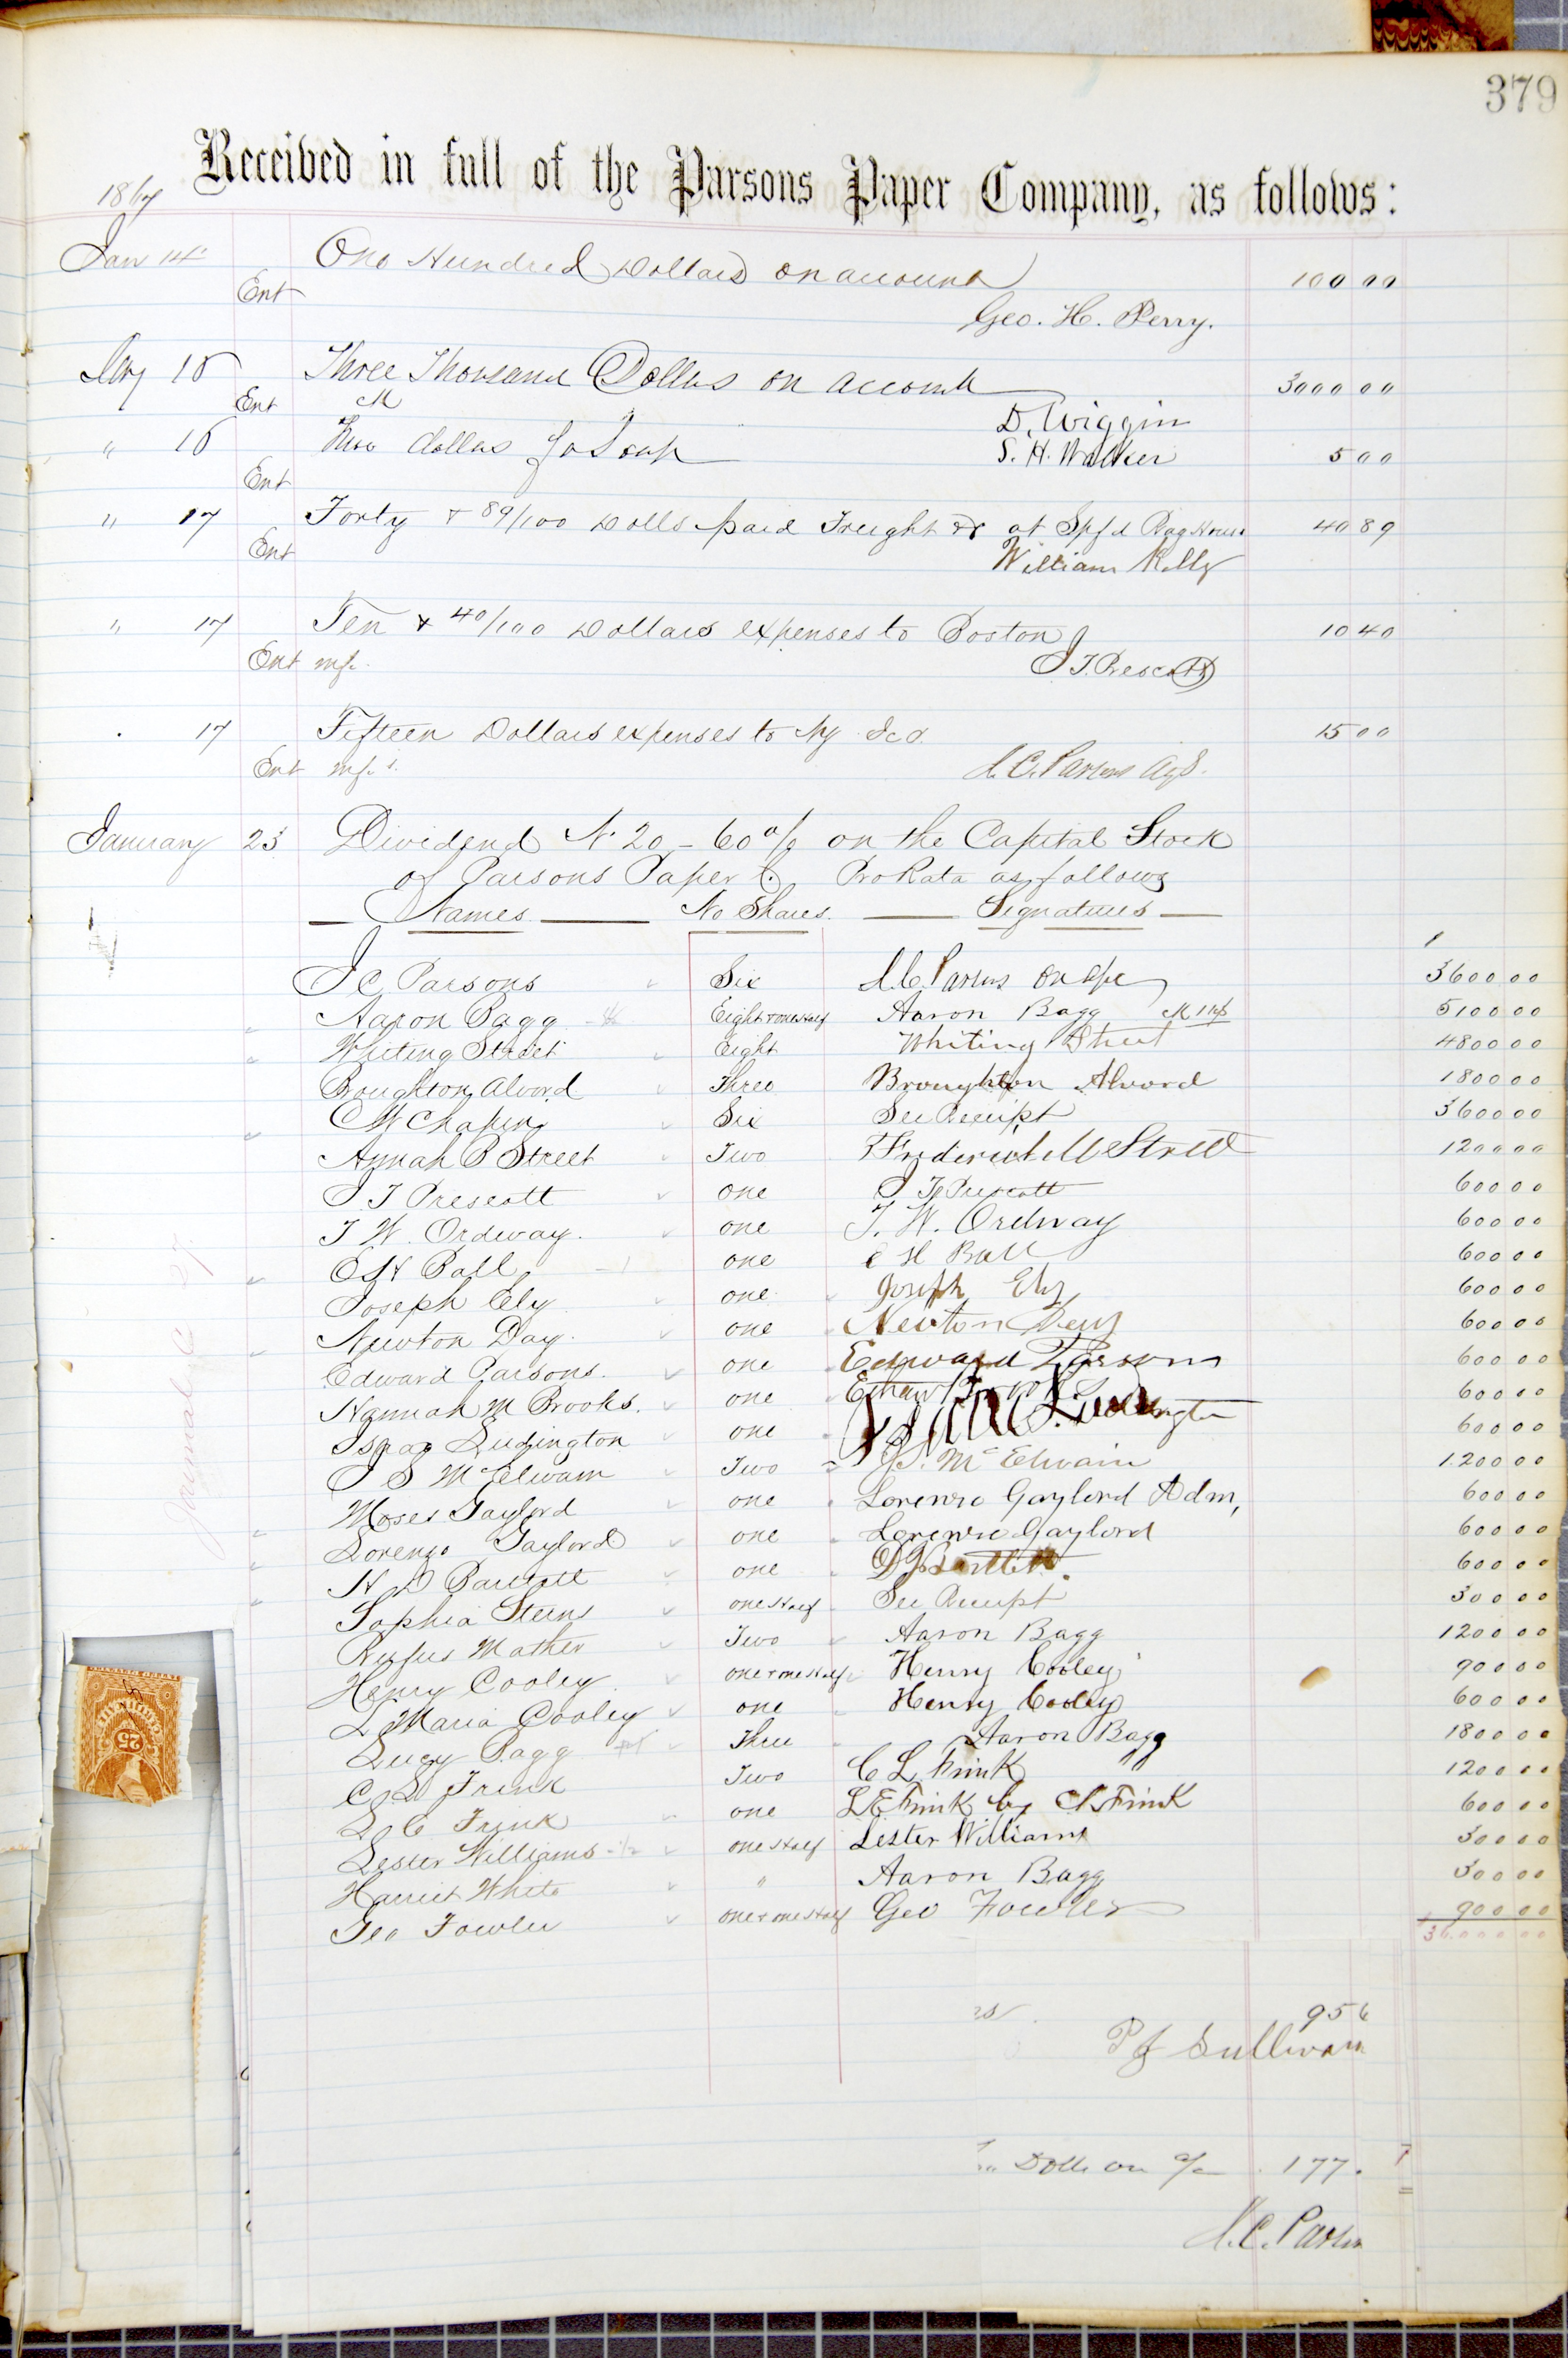 379
Received in full of the Parsons Paper Company, as follows:
1867
Jan 14 One Hundred Dollars on account 100 00
Ent Geo. H. Perry.
15 Three Thousand Dollars on account 3000 00
Ent D. Wiggin
" 15 dollars Soap S. H. Walker 5 00
Ent
" 17 Forty & 89/100 Dolls paid Freight &c at Spfd Rag House 40 89
Ent William Kelly
" 17 Ten & 40/100 Dollars expenses to Boston 10 40
Ent J T. Prescott
17 Fifteen Dollars expenses to Ny 15 00
Ent J. C. Parsons Agt.
January 23 Dividend No 20 - 60 % on the Capital Stock
of Parsons Paper Co. Pro Rata as follows
Names No Shares. Signatures
J C Parsons Six J. C. Parsons 3600 00
Aaron Bagg Eight & one Half Aaron Bagg 5100 00
Whiting Street Eight Whiting Street 4800 00
Broughton Alvord Three Broughton Alvord 1800 00
C W Chapin Six See Receipt 3600 00
Annah B Street Two Frederick M Street 1200 00
J T Prescott one J T Prescott 600 00
T W. Ordway. one T. W. Ordway 600 00
E H Ball one E H Ball 600 00
Joseph Ely one Joseph Ely 600 00
Newton Day. one Newton Day 600 00
Edward Parsons. one Edward Parsons 600 00
Hannah M Brooks. one Brooks 600 00
Isaac Ludington one Isaac Ludington 600 00
J S McElwain Two J S. McElwain 1200 00
Moses Gaylord one Lorenzo Gaylord Adm, 600 00
Lorenzo Gaylord one Lorenzo Gaylord 600 00
H D Bartlett one Bartlett. 600 00
Sophia Sterns one Half See Receipt 300 00
Rufus Mather Two Aaron Bagg 1200 00
Henry Cooley one & one Half Henry Cooley 900 00
L Maria Cooley one Henry Cooley 600 00
Lucy Bagg Three Aaron Bagg 1800 00
C L Frink Two C L Frink 1200 00
L E Frink one L E Frink by C L Frink 600 00
Lester Williams - 1/2 one Half Lester Williams 300 00
Harriet White " Aaron Bagg 300 00
Geo Fowler one & one Half Geo Fowler 900 00
Journal
25
956
P J Sullivan
Dolls on a/c 177.
J. C. Parson